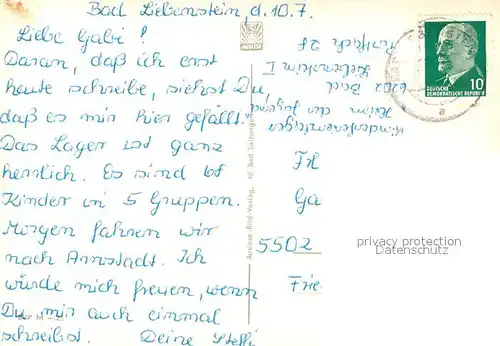 Bad Liebenstein, d. 10.7.
Liebe Gabi!
Daran, daß ich erst
heute schreibe, siehst Du,
daß es mir hier gefällt.
Das Lager ist ganz
herrlich. Es sind
Kinder in 5 Gruppen.
Morgen fahren wir
nach Arnstadt. Ich
würde mich freuen, wenn
Du mir auch einmal
schreibst. Deine Steffi
Kinderferienlager
Heim der Jugend
6202 Bad
Liebenstein I
Postfach 28
AUSLESE
Auslese-Bild-Verlag, Bad Salzungen
DEUTSCHE
DEMOKRATISCHE REPUBLIK
10
a
Frl
Ga
5502
Frie
privacy protection
Datenschutz